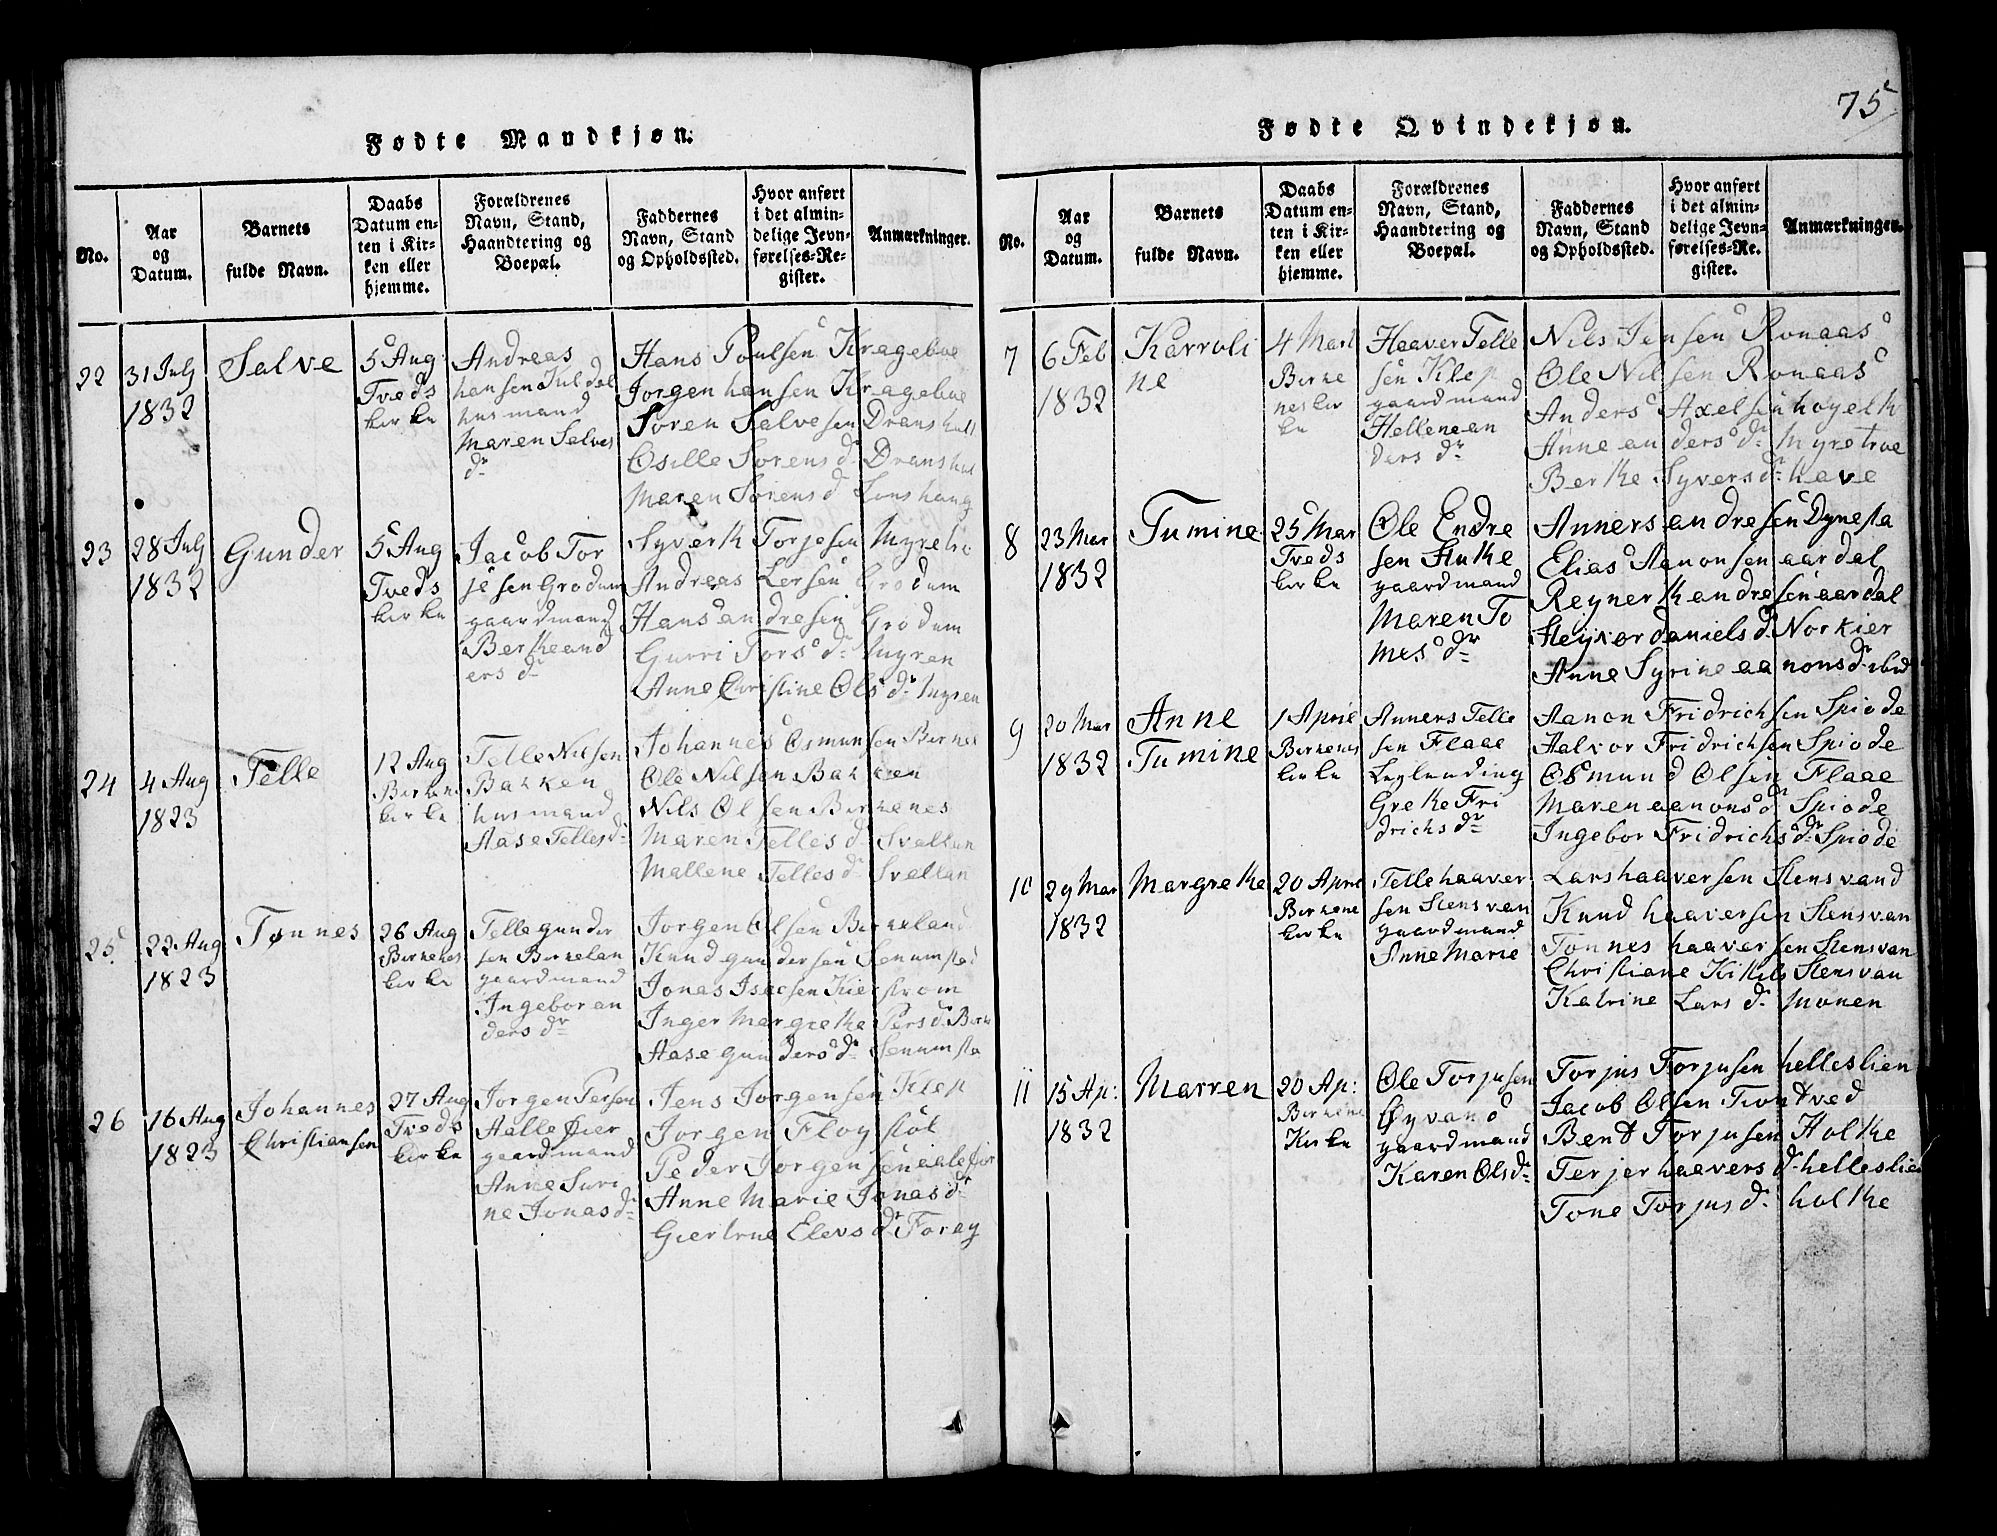 75
Fødte Mandkjøn.
No.
Aar og Datum.
Barnets fulde Navn.
Daabs Datum enten i Kirken eller hjemme.
Forældrenes Navn, Stand, Haandtering og Boepæl.
Faddernes Navn, Stand og Opholdssted.
Hvor anført i det almindelige Jevnførelses-Register.
Anmærkninger.
22
31 July
1832
Salve
5 Aug
Tveds
kirke
Andreas
hansen Kuldal
husmand
Maren Salves
dr
Hans Poulsen Krageboe
Jorgen hansen Krageboe
Soren Salvesen Dranshalt
Osille Sorens d. Dranshal
Maren Sorens d Lonshaug
23
28 July
1832
Gunder
5 Aug
Tveds
kirke
Jacob Tor
jesen Grodum
gaardmand
Berthe and
ers dr
Syverth Torjesen Myretro
Andreas Lersen Grodum
Hans andresen Grodum
Gurri Tors dr Myren
Anne Christine Ols dr Myren
24
4 Aug
1823
Telle
12 Aug
Birkene
kirke
Telle Nilsen
Bakken
husmand
Aase Telles dr
Johannes Osmunsen Birkenes
Ole Nilsen Bakken
Nils Olsen Birkenes
Maren Telles d. Svellan
Mallene Telles d. Svellan
25
22 Aug
1823
Tønnes
26 Aug
Birkenes
kirke
Telle gunder
sen Birkelan
gaardmand
Ingebor an
ders dr
Jorgen Olsen Birkeland
Knud gundersen Senumstad
Jonas Isacsen Kierstrom
Inger Margrethe Pers d. Birke
Aase gunders dr Senumsta
26
16 Aug
1823
Johannes
Christiansen
27 Aug
Tveds
kirke
Jorgen Persen
Aalle fier
gaardmand
Anne Suri
ne Jonas dr
Jens Jorgensen Klep
Jorgen Floystol
Peder Jorgensen aalefior
Anne Marie Jonas dr
Giertrue Elevs dr Foray
Fødte Qvindekjøn.
No.
Aar og Datum.
Barnets fulde Navn.
Daabs Datum enten i Kirken eller hjemme.
Forældrenes Navn, Stand, Haandtering og Boepæl.
Faddernes Navn, Stand og Opholdssted.
Hvor anført i det almindelige Jevnførelses-Register.
Anmærkninger.
7
6 Feb
1832
Karroli
ne
4 Mart
Birke
nes kir
ke
Haaver Telle
sen Klep
gaardmand
Hellene an
ders dr
Nils Jensen Ronaas
Ole Nilsen Ronaas
Anders Axelsen hogelh
Anne anders dr Myretroe
Berthe Syvers dr Kave
8
23 Mar
1832
Tumine
25 Mar
Tveds
kirke
Ole Endre
sen Stuthe
gaardmand
Maren To
mes dr
Anners andresen Dynesta
Elias Aanonsen aardal
Reynerth andresen aardal
Steyvor daniels d. Norkier
Anne Syrine aanons dr ibid
9
20 Mar
1832
Anne
Tumine
1 Aprie
Birkenes
kirke
Anners Telle
sen Flaae
Leylending
Grethe Fri
drichs dr
Aanon Fridrichsen Spiode
Aalvor Fridrichsen Spiode
Osmund Olsen Flaae
Maren aanons dr Spiode
Ingebor Fridrichs dr Spiode
10
29 Mar
1832
Margrethe
20 Aprie
Birkene
kirke
Telle haaver
sen Stensvan
gaardmand
Anne Marie
Lars haaversen Stensvand
Knud haaversen Stensvan
Tonnes haaversen Stensvan
Christiane Kikils Stensvan
Katrine Lars d. Monen
11
15 Ap:
1832
Marren
20 Ap:
Birkene
Kirke
Ole Torjusen
Øyvand
gaardmand
Karen Ols dr
Torjus Torjusen helleslien
Jacob Olsen Trontved
Bent Torjusen Holthe
Terjer haavers d. helleslien
Tone Torjus d. holthe